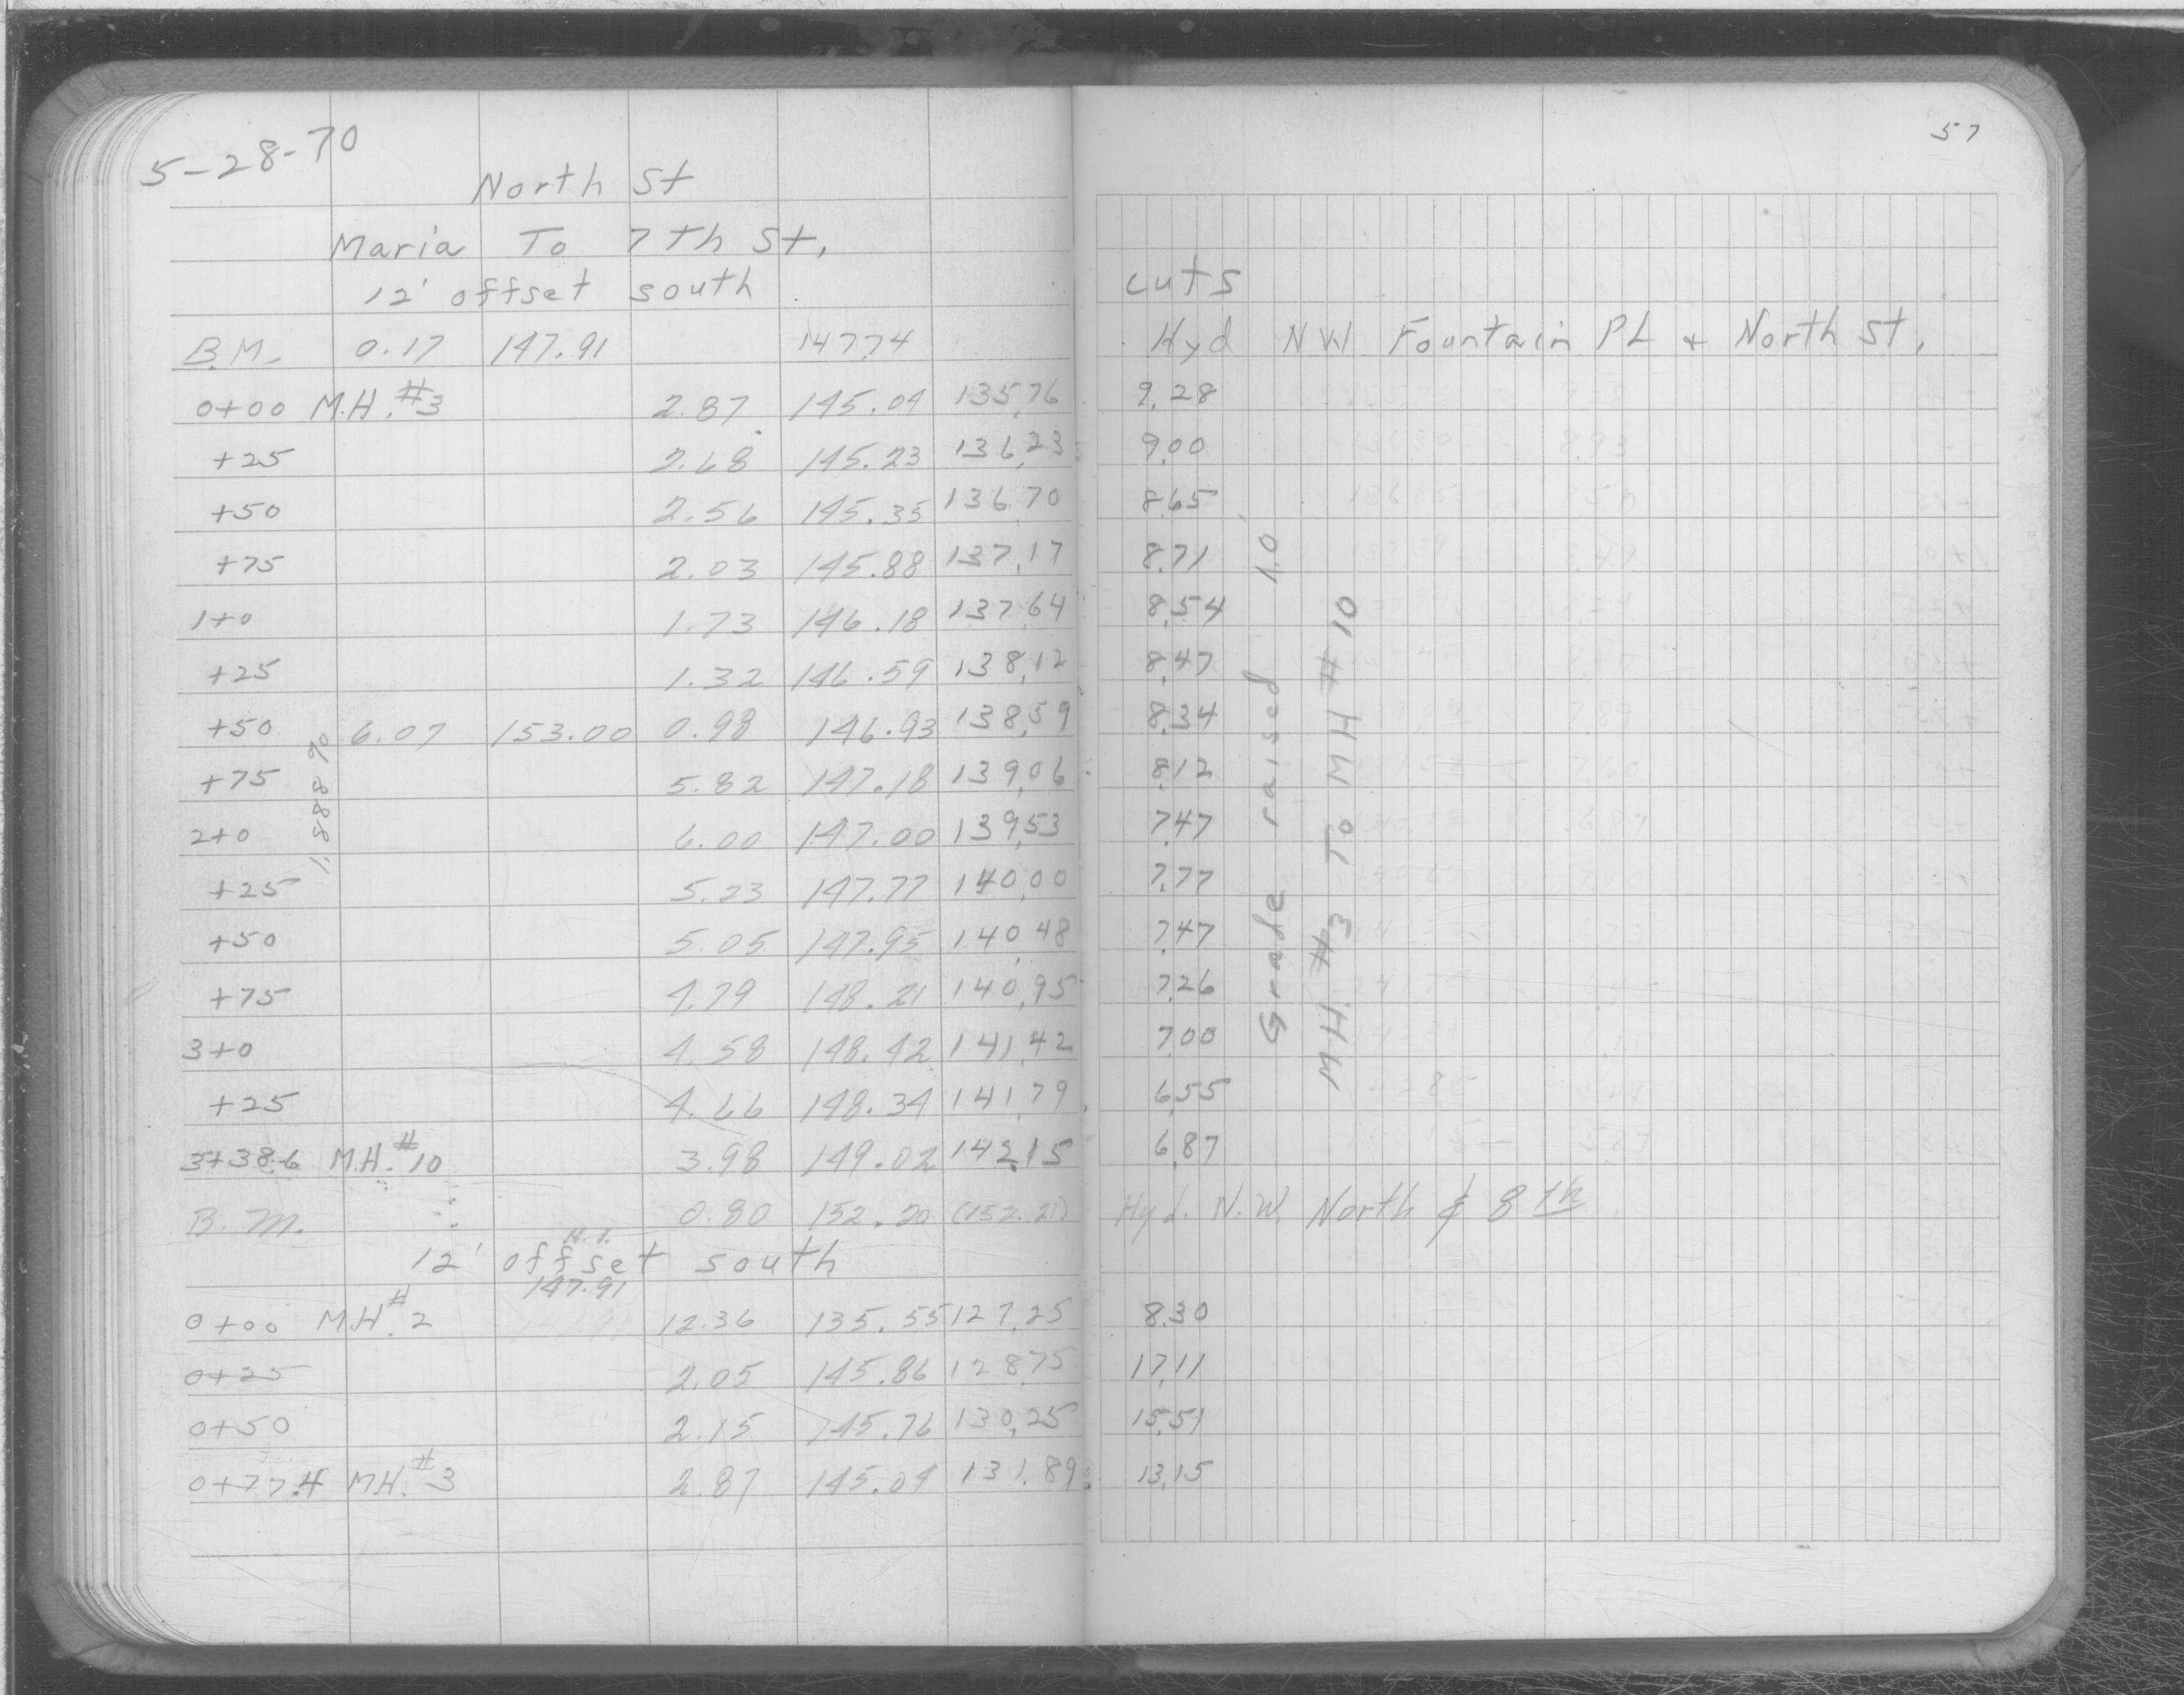 5-28-70
57
North St
Maria To 7th St.
12' offset south
cuts
B.M. 0.17 147.91 147.74 Hyd NW Fountain PL + North St.
0+00 M.H. #3 2.87 145.04 135.76 9.28
+25 2.68 145.23 136.23 9.00
+50 2.56 145.35 136.70 8.65
+75 2.03 145.88 137.17 8.71
1+0 1.73 146.18 137.64 8.54
+25 1.32 146.59 138.12 8.47
+50 6.07 153.00 0.98 146.93 138.59 8.34
+75 5.82 147.18 139.06 8.12
2+0 6.00 147.00 139.53 7.47
+25 5.23 147.77 140.00 7.77
+50 5.05 147.95 140.48 7.47
+75 4.79 148.21 140.95 7.26
3+0 4.58 148.42 141.42 7.00
+25 4.66 148.34 141.79 6.55
3+38.6 M.H. #10 3.98 149.02 142.15 6.87
1.888 %
Grade raised 1.0
MH. #3 To MH #10
B.M. 0.80 152.20 (152.21) Hyd. N.W. North & 8th
12' offset south
H.I.
147.91
0+00 M.H. #2 12.36 135.55 127.25 8.30
0+25 2.05 145.86 128.75 17.11
0+50 2.15 145.76 130.25 15.51
0+77.4 MH. #3 2.87 145.04 131.89 13.15